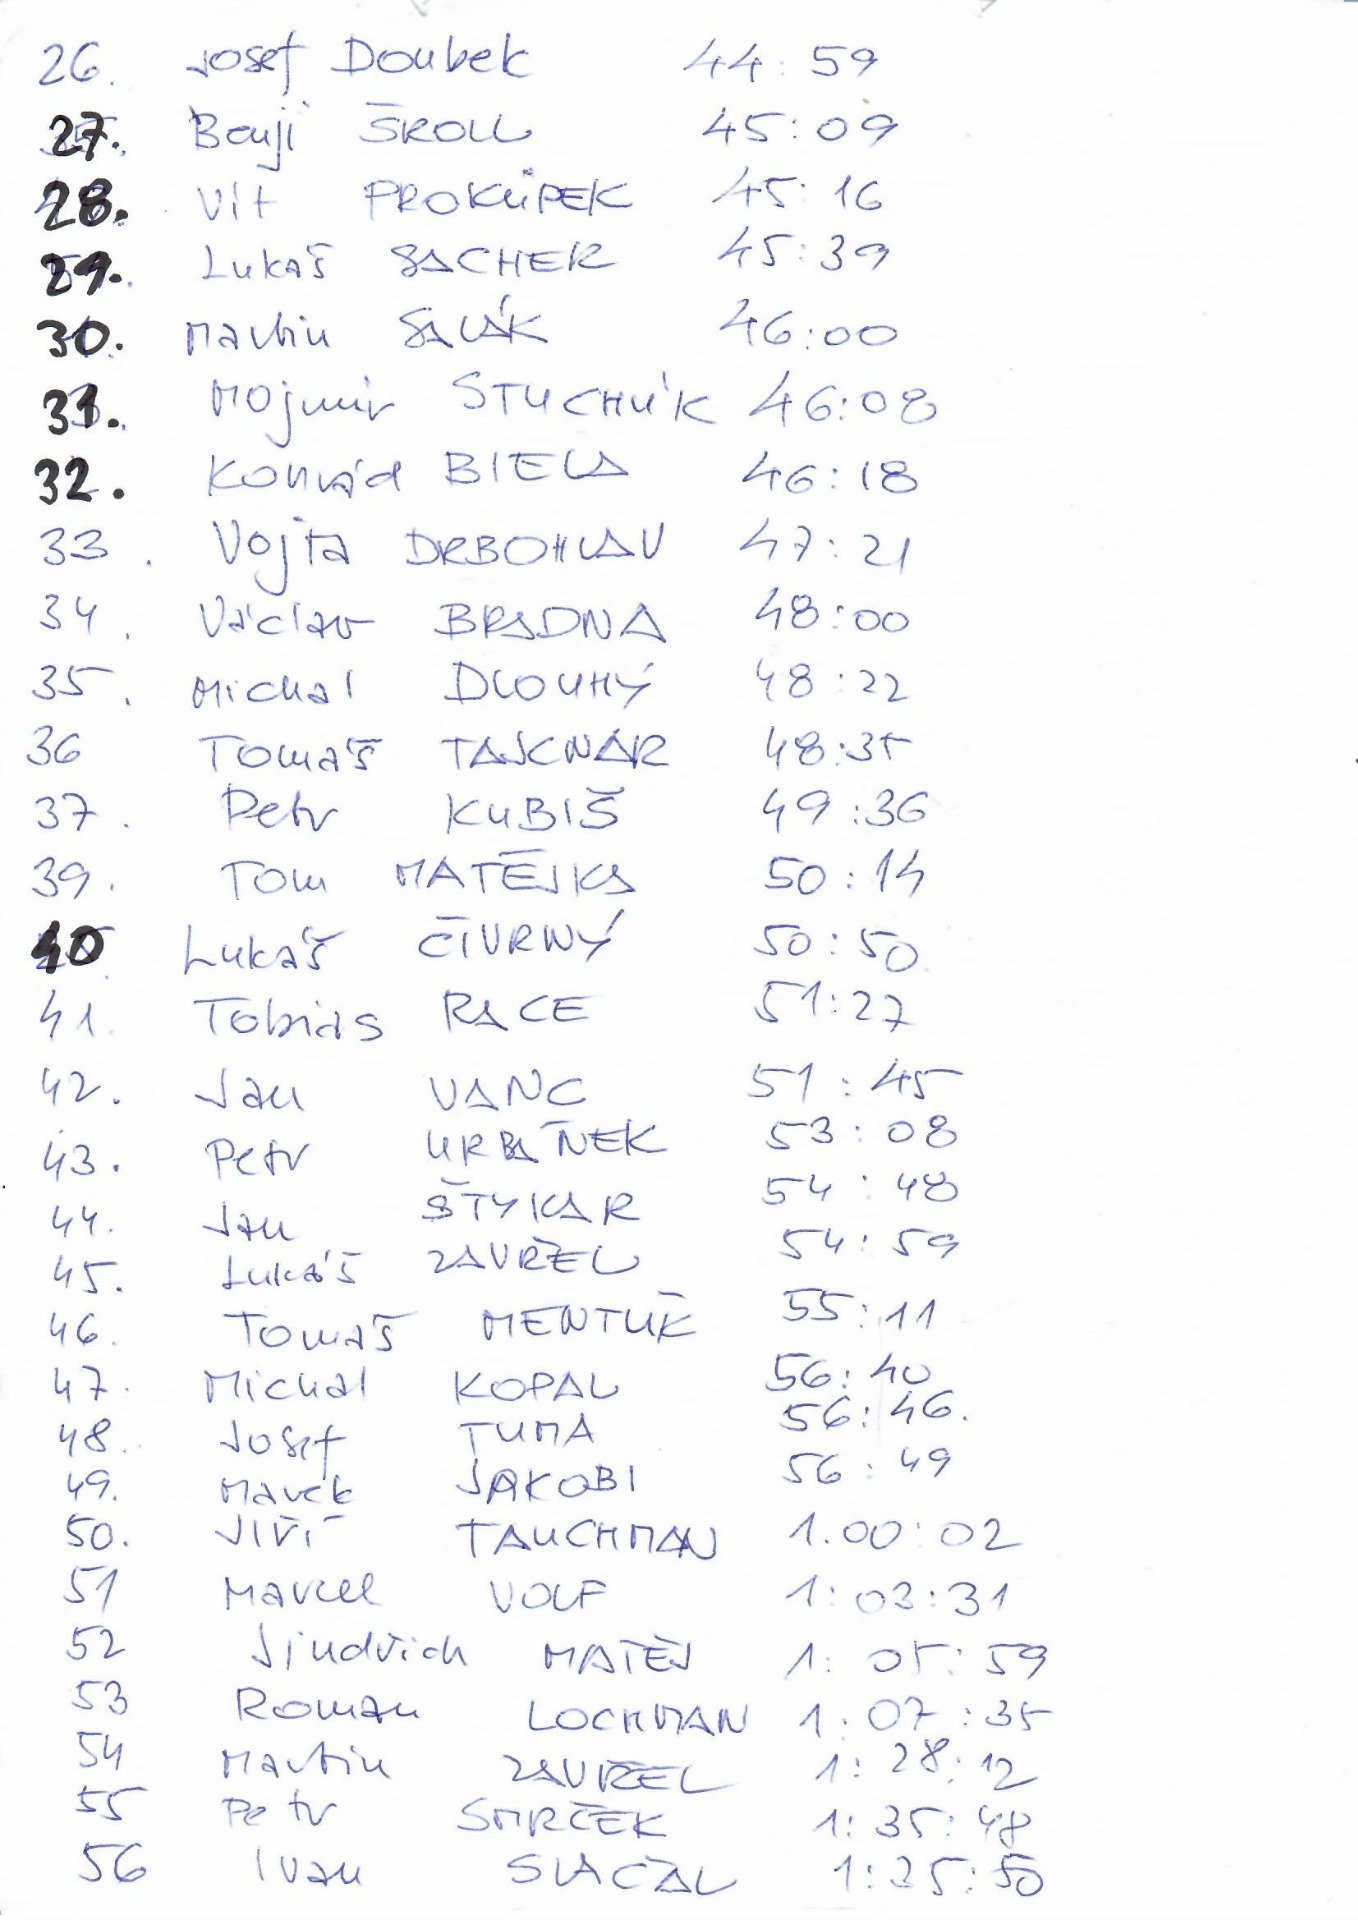 26. Josef Doubek 44:59
27. Benji ŠKOLL 45:09
28. Vít PROKŮPEK 45:16
29. Lukáš SACHER 45:39
30. Martin SALÁK 46:00
31. Mojmír STUCHLÍK 46:08
32. Konrád BIELA 46:18
33. Vojta DRBOHLAV 47:21
34. Václav BRADNA 48:00
35. Michal DLOUHÝ 48:22
36 Tomáš TAJCNÁR 48:35
37. Petr KUBIŠ 49:36
39. Tom MATĚJKA 50:14
40 Lukáš ČTVRNÝ 50:50
41. Tobias RACE 51:27
42. Jan VANC 51:45
43. Petr URBÁNEK 53:08
44. Jan ŠTYKAR 54:48
45. Lukáš ZAVŘEL 54:59
46. Tomáš 55:11
47. Michal KOPAL 56:40
48. Josef TUMA 56:46.
49. Marek JAKOBI 56:49
50. Jiří TAUCHMAN 1.00:02
51 Marcel VOLF 1:03:31
52 Jindřich MATĚJ 1:05:59
53 Roman LOCHMAN 1.07:35
54 Martin ZAVŘEL 1:28:12
55 Petr SMRČEK 1:35:48
56 Ivan SLAČÁL 1:35:50